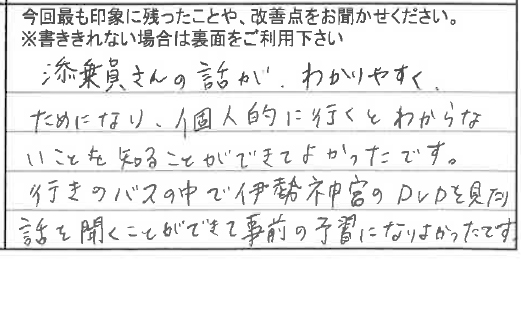 今回最も印象に残ったことや、改善点をお聞かせください。
※書ききれない場合は裏面をご利用下さい
添乗員さんの話が、わかりやすく、
ためになり、個人的に行くとわからな
いことを知ることができてよかったです。
行きのバスの中で伊勢神宮のDVDを見たり
話を聞くことができて事前の予習になりよかったです